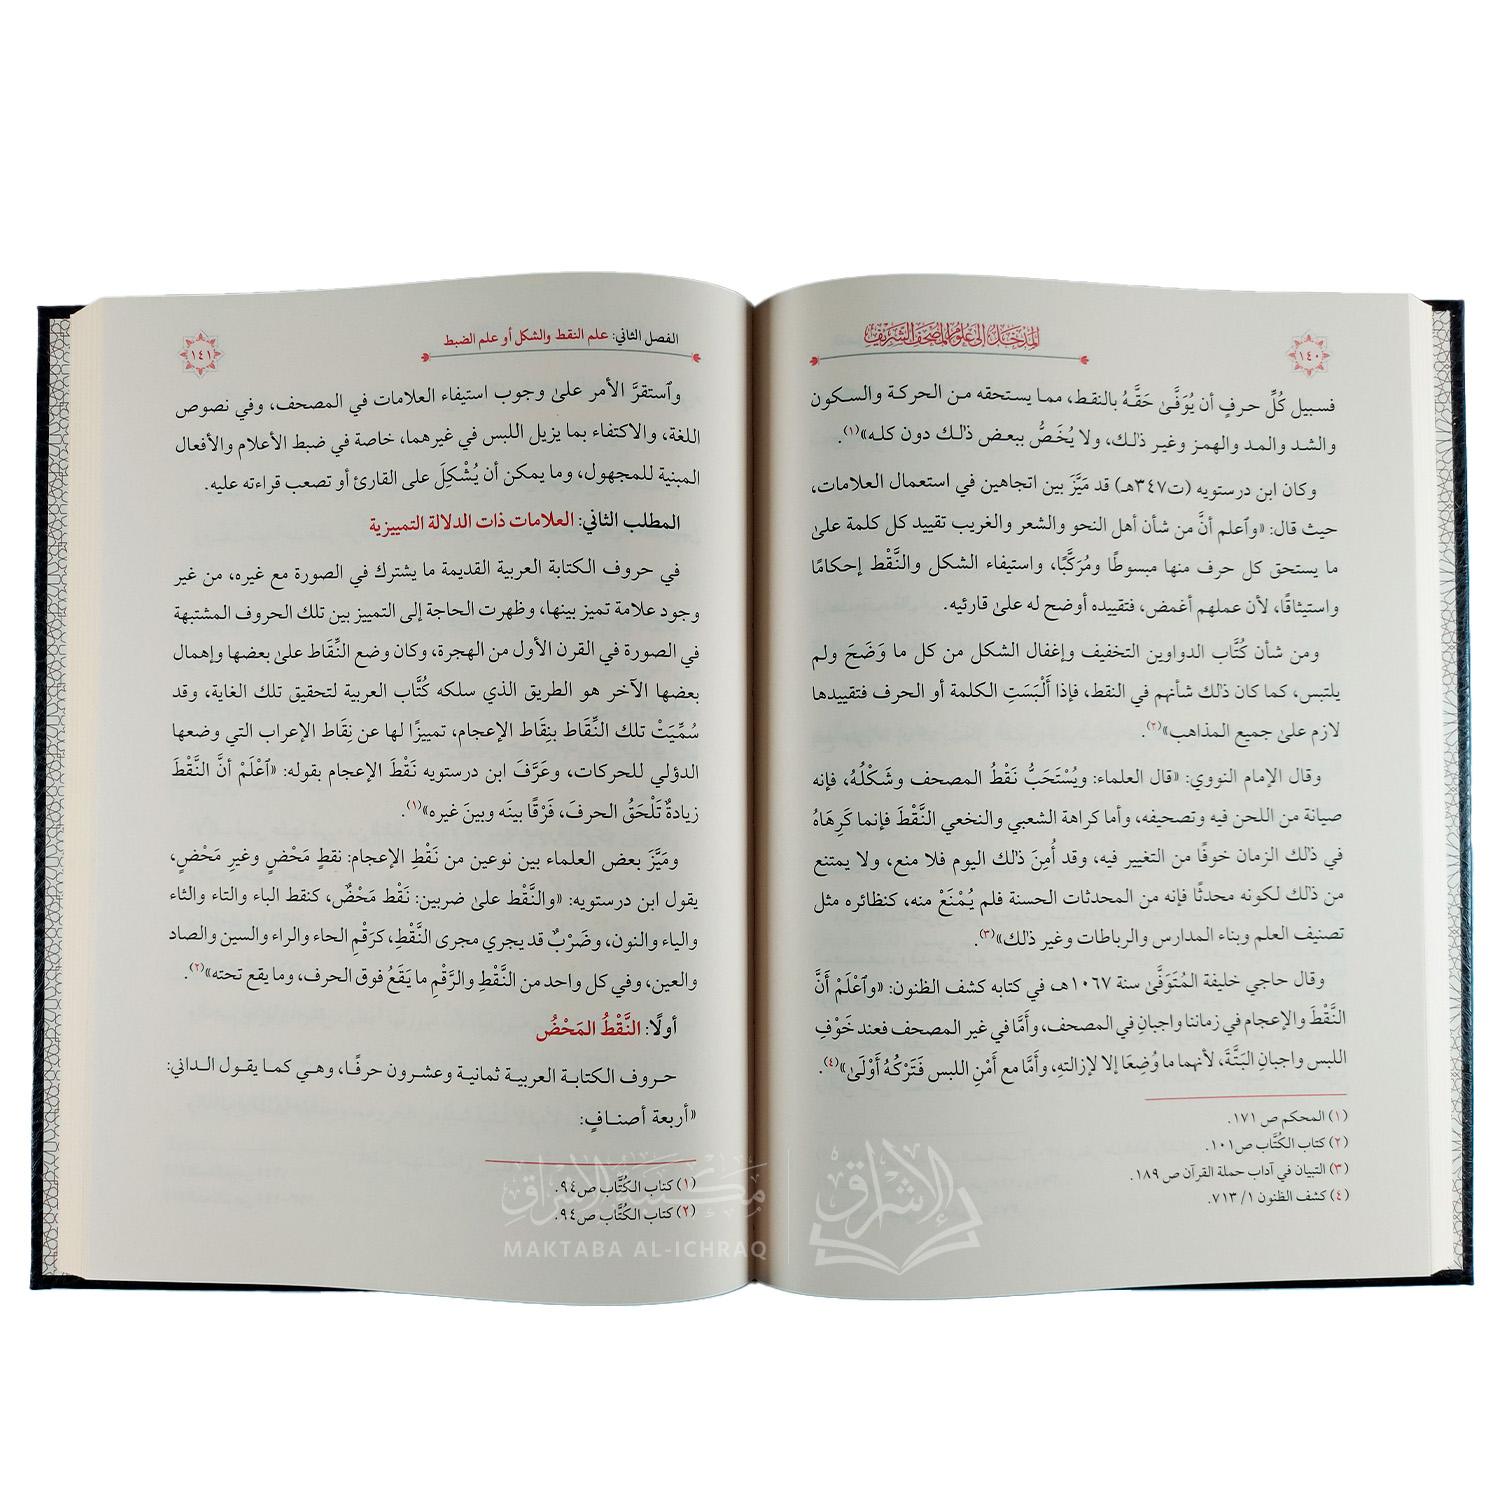 ١٤٠
المدخل إلى علوم المصحف الشريف
فسبيل كُلِّ حرفٍ أن يُوَفَّىٰ حَقَّهُ بالنقط، مما يستحقه من الحركة والسكون
والشد والمد والهمز وغير ذلك، ولا يُخَصُّ ببعض ذلك دون كله»(١).
وكان ابن درستويه (ت٣٤٧هـ) قد مَيَّزَ بين اتجاهين في استعمال العلامات،
حيث قال: «وٱعلم أنَّ من شأن أهل النحو والشعر والغريب تقييد كل كلمة علىٰ
ما يستحق كل حرف منها مبسوطًا ومُرَكَّبًا، واستيفاء الشكل والنَّقْط إحكامًا
واستيثاقًا، لأن عملهم أغمض، فتقييده أوضح له علىٰ قارئيه.
ومن شأن كُتَّاب الدواوين التخفيف وإغفال الشكل من كل ما وَضَحَ ولم
يلتبس، كما كان ذلك شأنهم في النقط، فإذا أَلْبَسَتِ الكلمة أو الحرف فتقييدها
لازم علىٰ جميع المذاهب»(٢).
وقال الإمام النووي: «قال العلماء: ويُسْتَحَبُّ نَقْطُ المصحف وشَكْلُهُ، فإنه
صيانة من اللحن فيه وتصحيفه، وأما كراهة الشعبي والنخعي النَّقْطَ فإنما كَرِهَاهُ
في ذلك الزمان خوفًا من التغيير فيه، وقد أُمِنَ ذلك اليوم فلا منع، ولا يمتنع
من ذلك لكونه محدثًا فإنه من المحدثات الحسنة فلم يُمْنَعْ منه، كنظائره مثل
تصنيف العلم وبناء المدارس والرباطات وغير ذلك»(٣).
وقال حاجي خليفة المُتَوَفَّىٰ سنة ١٠٦٧هـ، في كتابه كشف الظنون: «وٱعْلَمْ أَنَّ
النَّقْطَ والإعجام في زماننا واجبانِ في المصحف، وأَمَّا في غير المصحف فعند خَوْفِ
اللبس واجبانِ البَتَّةَ، لأنهما ما وُضِعَا إلا لإزالتهِ، وأَمَّا مع أَمْنِ اللبس فَتَرْكُهُ أَوْلَىٰ»(٤).
(١) المحكم ص ١٧١.
(٢) كتاب الكُتَّاب ص١٠١.
(٣) التبيان في آداب حملة القرآن ص ١٨٩.
(٤) كشف الظنون ١/ ٧١٣.
الفصل الثاني: علم النقط والشكل أو علم الضبط
١٤١
وٱستقرَّ الأمر علىٰ وجوب استيفاء العلامات في المصحف، وفي نصوص
اللغة، والاكتفاء بما يزيل اللبس في غيرهما، خاصة في ضبط الأعلام والأفعال
المبنية للمجهول، وما يمكن أن يُشْكِلَ على القارئ أو تصعب قراءته عليه.
المطلب الثاني: العلامات ذات الدلالة التمييزية
في حروف الكتابة العربية القديمة ما يشترك في الصورة مع غيره، من غير
وجود علامة تميز بينها، وظهرت الحاجة إلى التمييز بين تلك الحروف المشتبهة
في الصورة في القرن الأول من الهجرة، وكان وضع النِّقَاط علىٰ بعضها وإهمال
بعضها الآخر هو الطريق الذي سلكه كُتَّاب العربية لتحقيق تلك الغاية، وقد
سُمِّيَتْ تلك النِّقَاط بنِقَاط الإعجام، تمييزًا لها عن نِقَاط الإعراب التي وضعها
الدؤلي للحركات، وعَرَّفَ ابن درستويه نَقْطَ الإعجام بقوله: «ٱعْلَمْ أنَّ النَّقْطَ
زيادةٌ تَلْحَقُ الحرفَ، فَرْقًا بينَه وبينَ غيره»(١).
ومَيَّزَ بعض العلماء بين نوعين من نَقْطِ الإعجام: نقطٍ مَحْضٍ وغيرِ مَحْضٍ،
يقول ابن درستويه: «والنَّقْط علىٰ ضربين: نَقْط مَحْضٌ، كنقط الباء والتاء والثاء
والياء والنون، وضَرْبٌ قد يجري مجرى النَّقْطِ، كرَقْمِ الحاء والراء والسين والصاد
والعين، وفي كل واحد من النَّقْطِ والرَّقْمِ ما يَقَعُ فوق الحرف، وما يقع تحته»(٢).
أولًا: النَّقْطُ المَحْضُ
حروف الكتابة العربية ثمانية وعشرون حرفًا، وهي كما يقول الداني:
«أربعة أصنافٍ:
(١) كتاب الكُتَّاب ص٩٤.
(٢) كتاب الكُتَّاب ص٩٤.
مكتبة الإشراق
MAKTABA AL-ICHRAQ
الإشراق